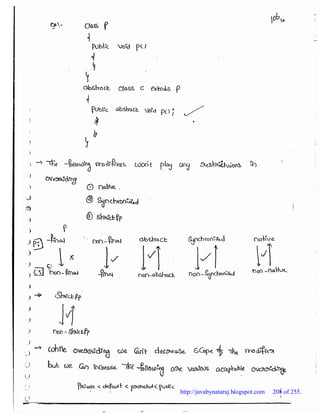 Ex:- class P
{
public void p()
{
}
}
abstract class C extends P
{
public abstract void p();
}
→ The following modifiers won't play any restrictions in
overriding
① native.
② Synchronized
③ strictfp
P: final non-final abstract synchronized native
C: non-final final non-abstract non-synchronized non-native.
→ strictfp
non-strictfp
→ while overriding we can't decrease scope of the modifier
but we can increase. The following are various acceptable overridings
private < default < protected < public
http://javabynataraj.blogspot.com 208 of 255.